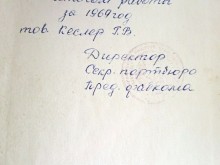 итогам работы
за 1969 год
тов. Кеслер Г.В.
Директор
Секр. партбюро
Пред. завкома